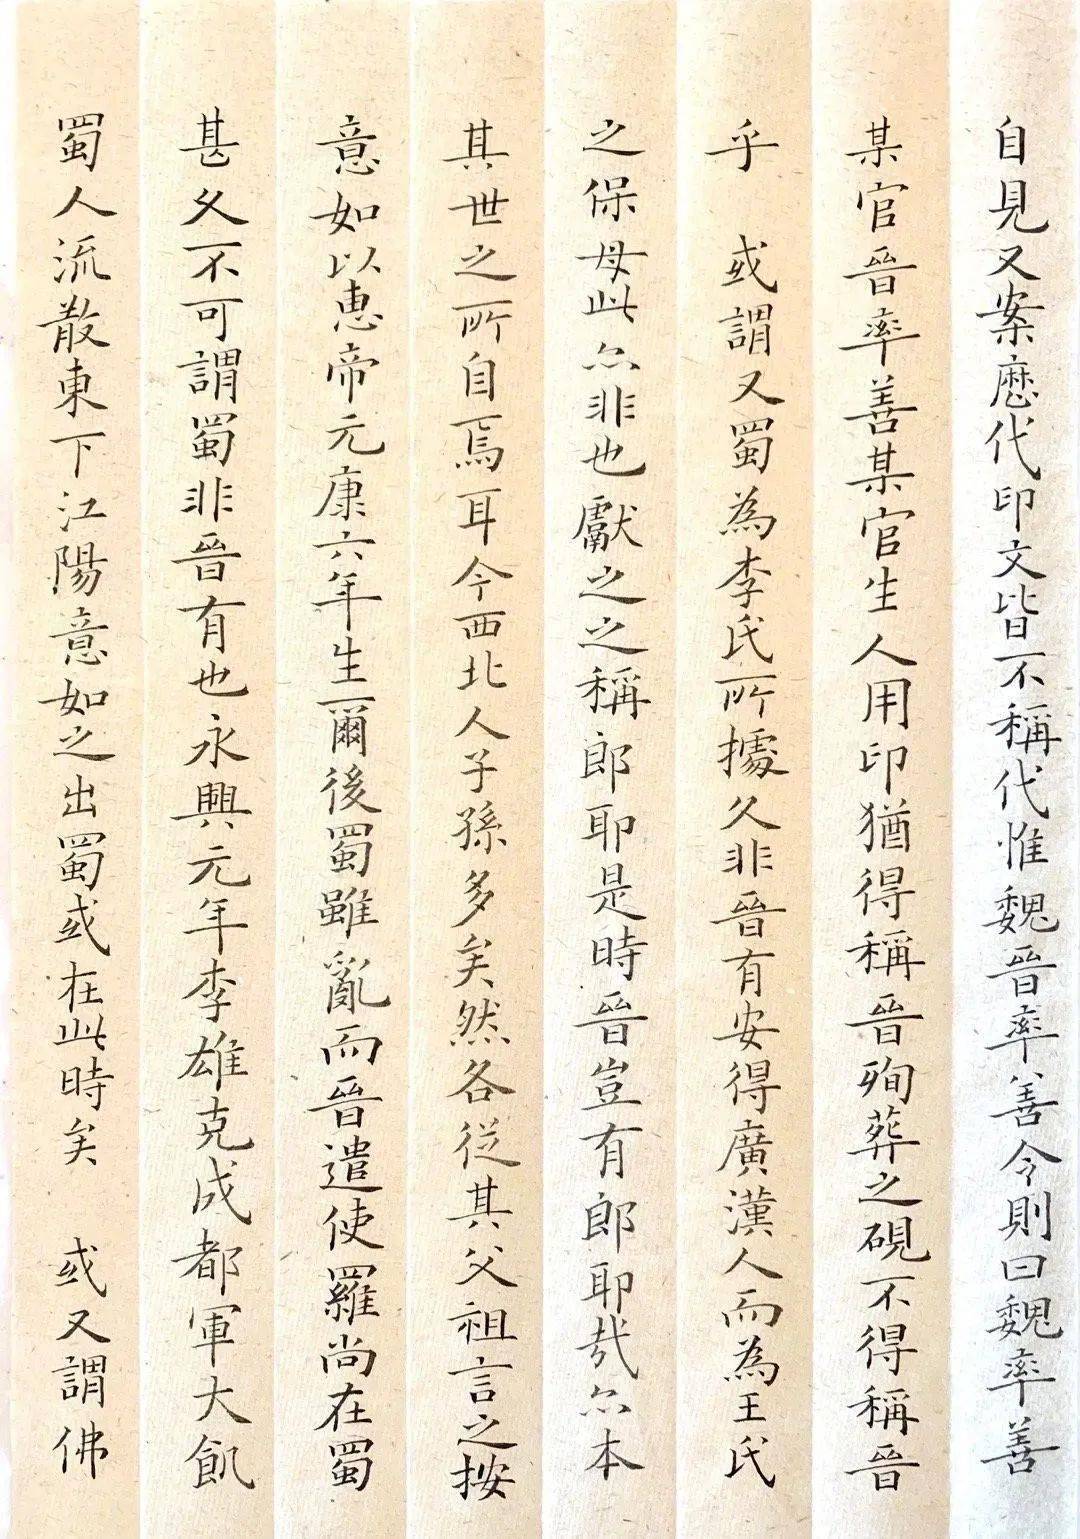 自見又案歷代印文皆不稱代惟魏晉率善令則曰魏率善
某官晉率善某官生人用印猶得稱晉殉葬之硯不得稱晉
乎 或謂又蜀為李氏所據久非晉有安得廣漢人而為王氏
之保母此亦非也獻之之稱郎耶是時晉豈有郎耶哉亦本
其世之所自焉耳今西北人子孫多矣然各從其父祖言之按
意如以惠帝元康六年生爾後蜀雖亂而晉遣使羅尚在蜀
甚久不可謂蜀非晉有也永興元年李雄克成都軍大飢
蜀人流散東下江陽意如之出蜀或在此時矣 或又謂佛